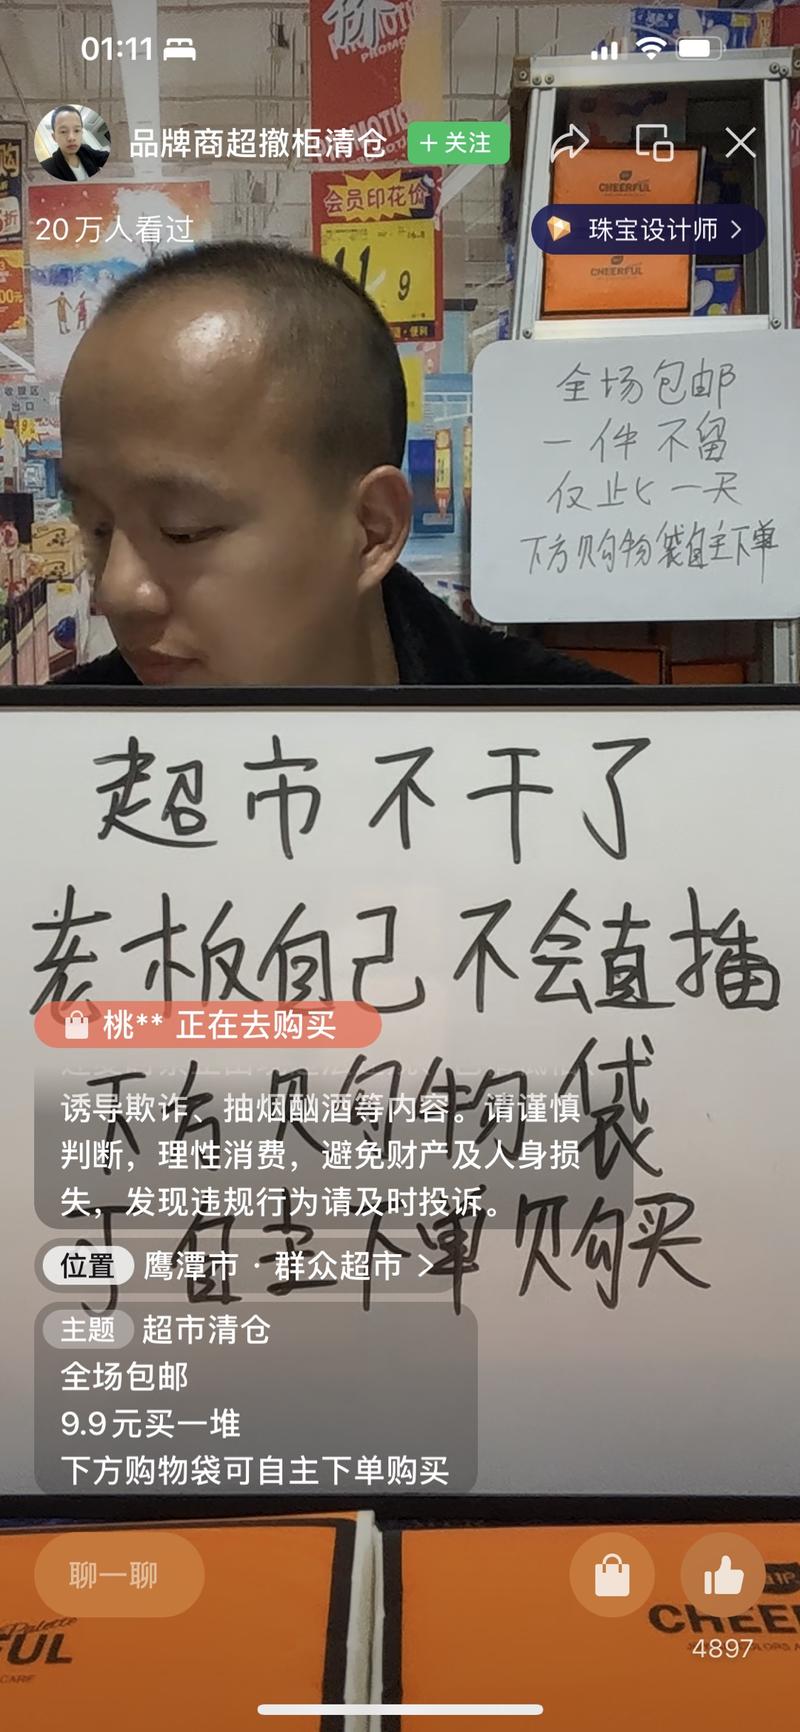 01:11
品牌商超撤柜清仓
+关注
20万人看过
珠宝设计师
会员印花价
11.9
CHEERFUL
CHEERFUL
收银区
出口
全场包邮
一件不留
仅此一天
下方购物袋自主下单
超市不干了
老板自己不会直播
桃** 正在去购买
下方购物袋
诱导欺诈、抽烟酗酒等内容。请谨慎
判断，理性消费，避免财产及人身损
失，发现违规行为请及时投诉。
可自主下单购买
位置 鹰潭市·群众超市
主题 超市清仓
全场包邮
9.9元买一堆
下方购物袋可自主下单购买
聊一聊
4897